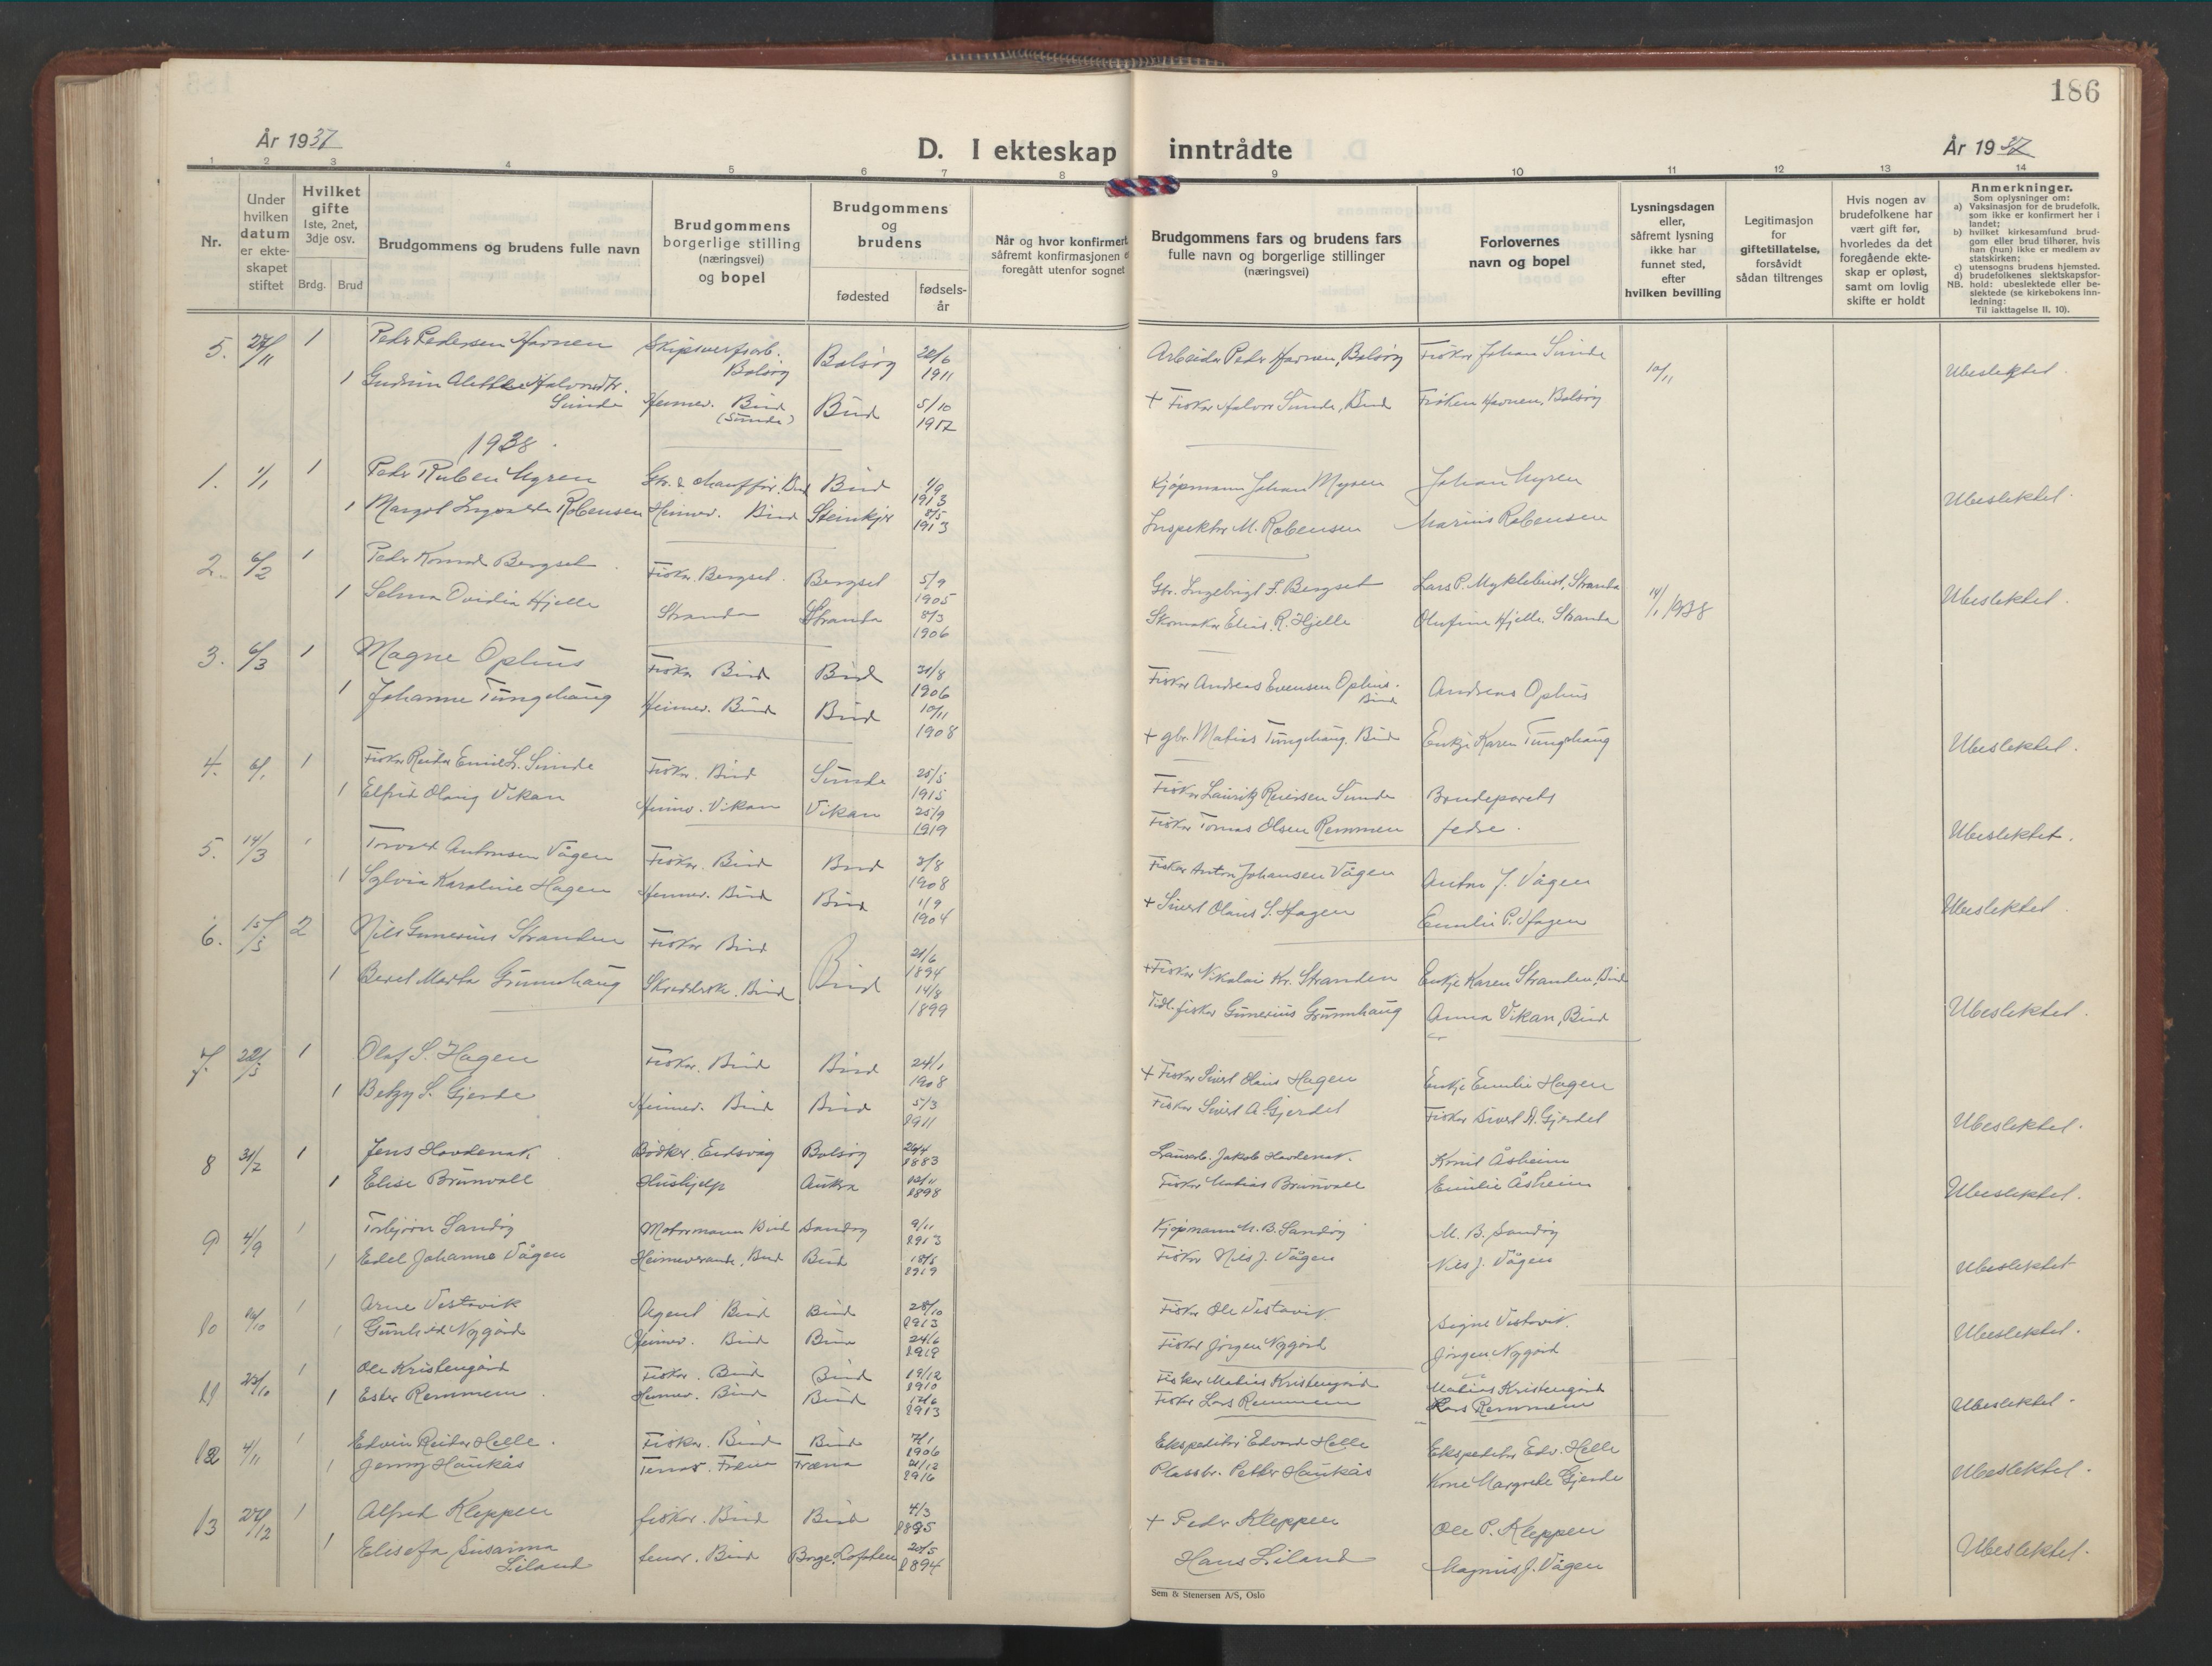 186
År 1937
D. I ekteskap inntrådte
År 1937
1 2 3 4 5 6 7 8 9 10 11 12 13 14
Nr.
Under hvilken datum er ekteskapet stiftet
Hvilket gifte 1ste, 2net, 3dje osv.
Brdg. Brud
Brudgommens og brudens fulle navn
Brudgommens borgerlige stilling (næringsvei) og bopel
Brudgommens og brudens
fødested
fødselsår
Når og hvor konfirmert såfremt konfirmasjonen foregått utenfor sognet
Brudgommens fars og brudens fars fulle navn og borgerlige stillinger (næringsvei)
Forlovernes navn og bopel
Lysningsdagen eller, såfremt lysning ikke har funnet sted, efter hvilken bevilling
Legitimasjon for giftetillatelse, forsåvidt sådan tiltrenges
Hvis nogen av brudefolkene har vært gift før, hvorledes da det foregående ekteskap er opløst, samt om lovlig skifte er holdt
Anmerkninger.
Som oplysninger om:
a) Vaksinasjon for de brudefolk, som ikke er konfirmert her i landet;
b) hvilket kirkesamfund brudgom eller brud tilhører, hvis han (hun) ikke er medlem av statskirken;
c) utensogns brudens hjemsted.
d) brudefolkenes slektskapsforhold: ubeslektede eller beslektede (se kirkebokens innledning:
NB.
Til iakttagelse II, 10).
5. 27/11 1 Peder Pedersen Havnen Skipsverfsarb. Bolsøy Bolsøy 28/6 1911 Arbeider Peder Havnen, Bolsøy Fisker Johan Sunde 10/11 Ubeslektet.
1 Gudrun Alette Halvordtr. Sunde Heimev. Bud (Sunde) Bud 5/10 1917 + Fisker Halvor Sunde, Bud Frøken Havnen, Bolsøy
1938.
1. 1/1 1 Peder Ruben Myren Gbr. & chauffør, Bud Bud 1/9 1913 Kjøpmann Johan Myren Johan Myren Ubeslektet.
1 Margot Ingvalda Robensen Heimev. Bud Steinkjer 8/5 1913 Inspektør M. Robensen Marius Robensen
2. 6/2 1 Peder Konrad Bergset Fisker. Bergset. Bergset 5/9 1905 Gbr. Ingebrigt F. Bergset Lars P. Myklebust, Stranda 14/1 1938 Ubeslektet.
1 Selma Ovidia Hjelle Stranda Stranda 8/3 1906 Skomaker Elias R. Hjelle Olufine Hjelle, Stranda
3. 6/3 1 Magne Ophus Fisker Bud Bud 31/8 1906 Fisker Andreas Evensen Ophus. Bud Andreas Ophus Ubeslektet.
1 Johanne Tungehaug Heimev. Bud Bud 10/11 1908 + gbr. Matias Tungehaug. Bud Enkje Karen Tungehaug
4. 6/1 1 Fisker Reidar Emil L. Sunde Fisker. Bud Sunde 25/5 1915 Fisker Lauritz Reiersen Sunde Brudeparets Ubeslektet.
1 Elfrid Olaug Vikan Heimev. Vikan Vikan 25/9 1919 Fisker Tomas Olsen Remmen fedre.
5. 14/3 1 Torvald Antonsen Vågen Fisker. Bud Bud 3/8 1908 Fisker Anton Johansen Vågen Anton J. Vågen Ubeslektet.
1 Sylvia Karoline Hagen Heimev. Bud Bud 1/9 1904 + Sivert Olaus S. Hagen Emilie P. Hagen
6. 15/5 2 Nils Gunerius Stranden Fisker Bud Bud 21/6 1894 + Fisker Nikolai Kr. Stranden Enkje Karen Stranden, Bud Ubeslektet.
1 Beret Marta Grunnhaug Skredderske. Bud 14/8 1899 Tidl. fisker Gunerius Grunnhaug Anna Vikan, Bud
7. 22/5 1 Olaf S. Hagen Fisker. Bud Bud 24/1 1908 + Fisker Sivert Olaus Hagen Enkje Emilie Hagen Ubeslektet.
1 Betzy S. Gjerde Heimev. Bud Bud 5/3 1911 Fisker Sivert A. Gjerdet Fisker Sivert A. Gjerdet
8 31/7 1 Jens Hovdenak Bødker. Eidsvåg Bolsøy 26/4 1883 Jakob Hovdenak. Kornel Åsheim Ubeslektet.
1 Elise Brunvoll Hushjelp Aukra 12/11 1898 Fisker Matias Brunvoll Emilie Åsheim
9 4/9 1 Torbjørn Sandøy Motormann Bud Sandøy 9/11 1913 Kjøpmann M. B. Sandøy M. B. Sandøy Ubeslektet
1 Edel Johanne Vågen Heimeverande, Bud Bud 18/5 1919 Fisker Nils J. Vågen Nils J. Vågen
10 16/10 1 Arne Vestavik Agent Bud Bud 28/10 1913 Fisker Ole Vestavik Signe Vestavik. Ubeslektet.
1 Gunhild Nygård Heimev. Bud Bud 24/6 1919 Fisker Jørgen Nygård Jørgen Nygård
11 23/10 1 Ole Kristengård Fisker. Bud Bud 19/12 1910 Fisker Matias Kristengård Matias Kristengård Ubeslektet.
1 Ester Remmem Heimev. Bud Bud 17/6 1913 Fisker Lars Remmem Lars Remmem
12 4/11 1 Edvin Reidar Helle. Fisker. Bud Bud 7/1 1906 Ekspeditør Edvard Helle Ekspeditør Edv. Helle Ubeslektet.
1 Jenny Haukås Tenar. Fræna Fræna 21/12 1916 Plassbr. Petter Haukås Margrete Gjerde
13 27/12 1 Alfred Kleppen fisker. Bud Bud 4/3 1895 + Peder Kleppen Ole P. Kleppen Ubeslektet.
1 Elisefa Susanna Liland tenar. Bud Borge, Lofoten 20/5 1894 Hans Liland Magnus J. Vågen
Sem & Stenersen A/S, Oslo